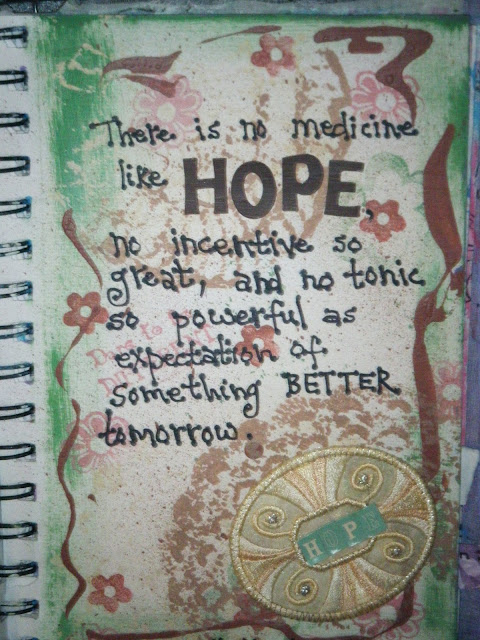 There is no medicine
like HOPE,
no incentive so
great, and no tonic
so powerful as
expectation of
something BETTER
tomorrow.
HOPE